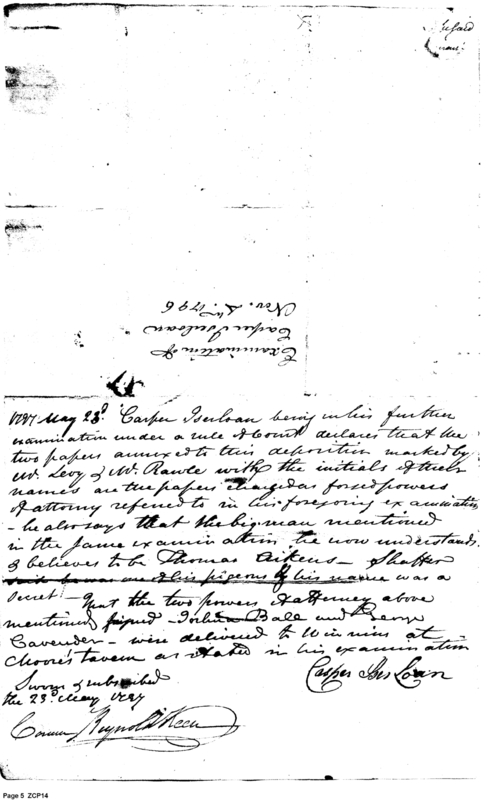 Examination of
Casper Iserloan
Nov. 4th. 1796
1797 May 23d. Casper Iserloan being in his further
examination under a rule of Court declares that the
two papers annexed to this deposition marked by
Mr. Levy & Mr. Rawle with the initials of their
names are the papers charged as forged powers
of attorny referred to in his foregoing examination
- he also says that the big man mentioned
in the same examination he now understands
& believes to be Thomas Aikens - Shaffer
said he was one of his pigeons & his name was a
secret - that the two powers of attorney above
mentioned signed - Joshua Ball and George
Cavender - were delivered to at
Moore's tavern as stated in his examination
Sworn & subscribed
the 23d. May 1797
Casper Iser Loan
Reynold Keen
Page 5 ZCP14